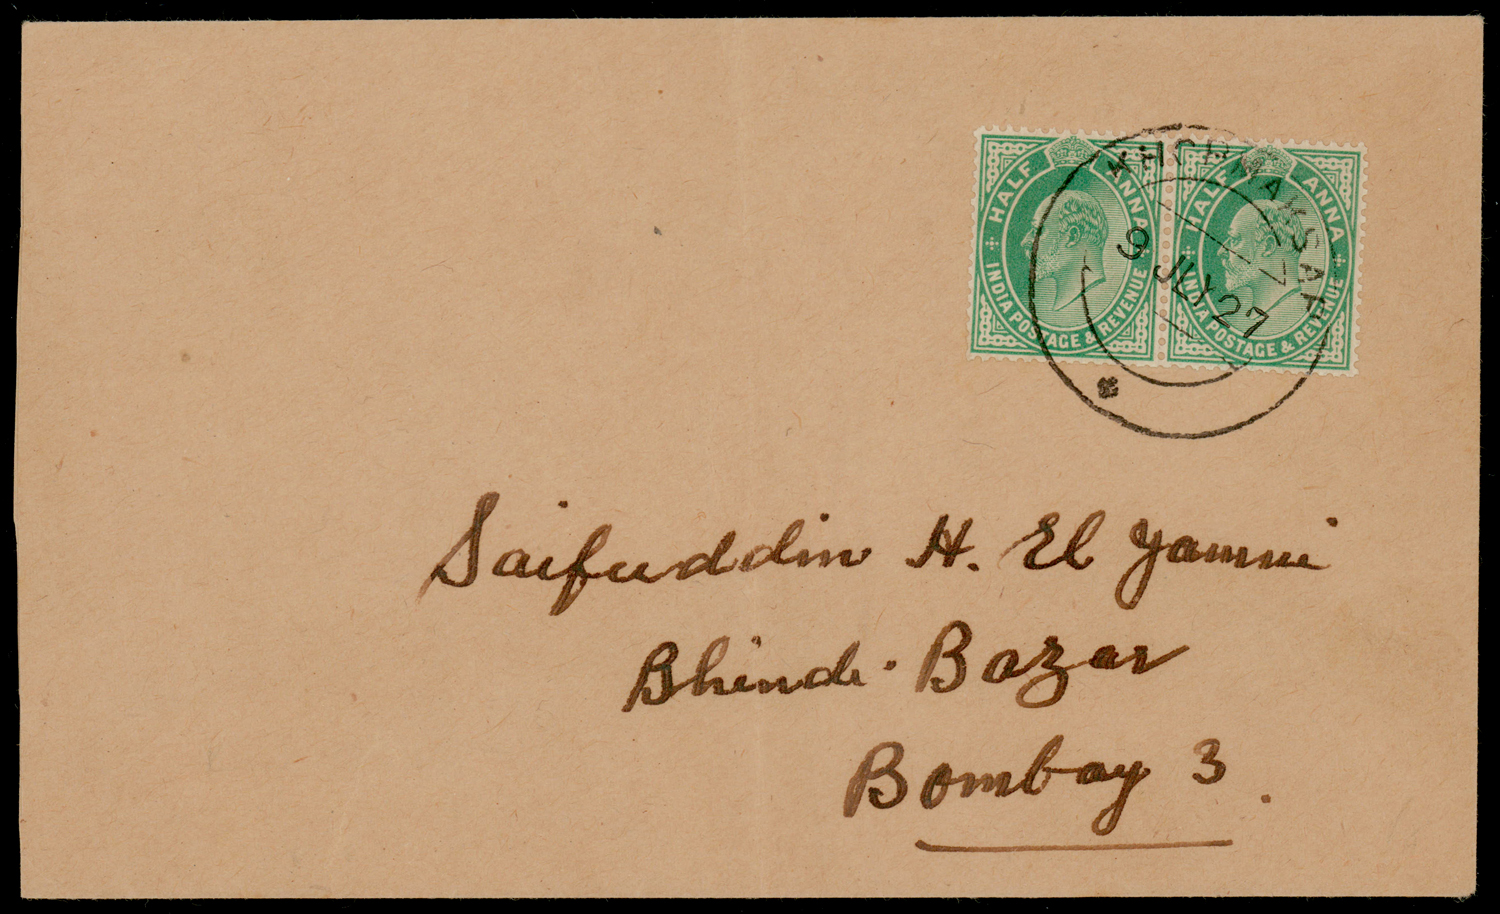 HALF ANNA
INDIA POSTAGE & REVENUE
HALF ANNA
INDIA POSTAGE & REVENUE
KHORMAKSAR
9 JLY 27
Saifuddin H. El Yamni
Bhindi Bazar
Bombay 3.